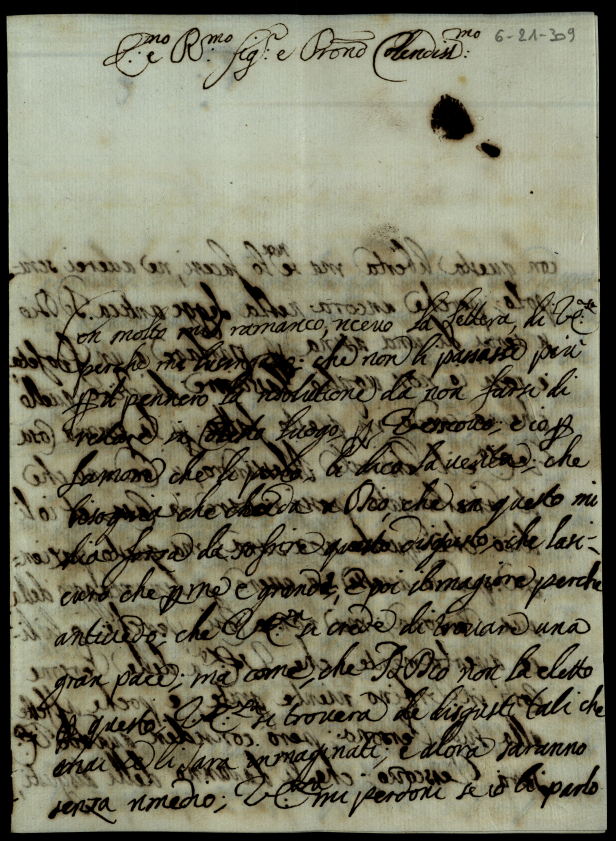 6-21-309
Ill.mo e R.mo sig.r e Prond Colendiss.mo
Con molto mio ramarico, ricevo la lettera, di V.S.
perche mi lusingavo; che non li passasse più
p il pennero la risolutione da non farsi di
restare in cotesto luogo p Vescovo; e io p
lamore che li porto li dico la verità; che
bisogna che chieda a Dio, che in questo mi
dia forza da sofrire questo disgusto, che lasi-
curo che p me e grande, e poi il magiore perche
antivedo; che V.S. si crede di trovare una
gran pace; ma come, che Dio non la eletto
a questo V.S. si trovera de disgusti tali che
mai se li sara immaginati; e alora saranno
senza rimedio; V.S. mi perdoni se io li parlo